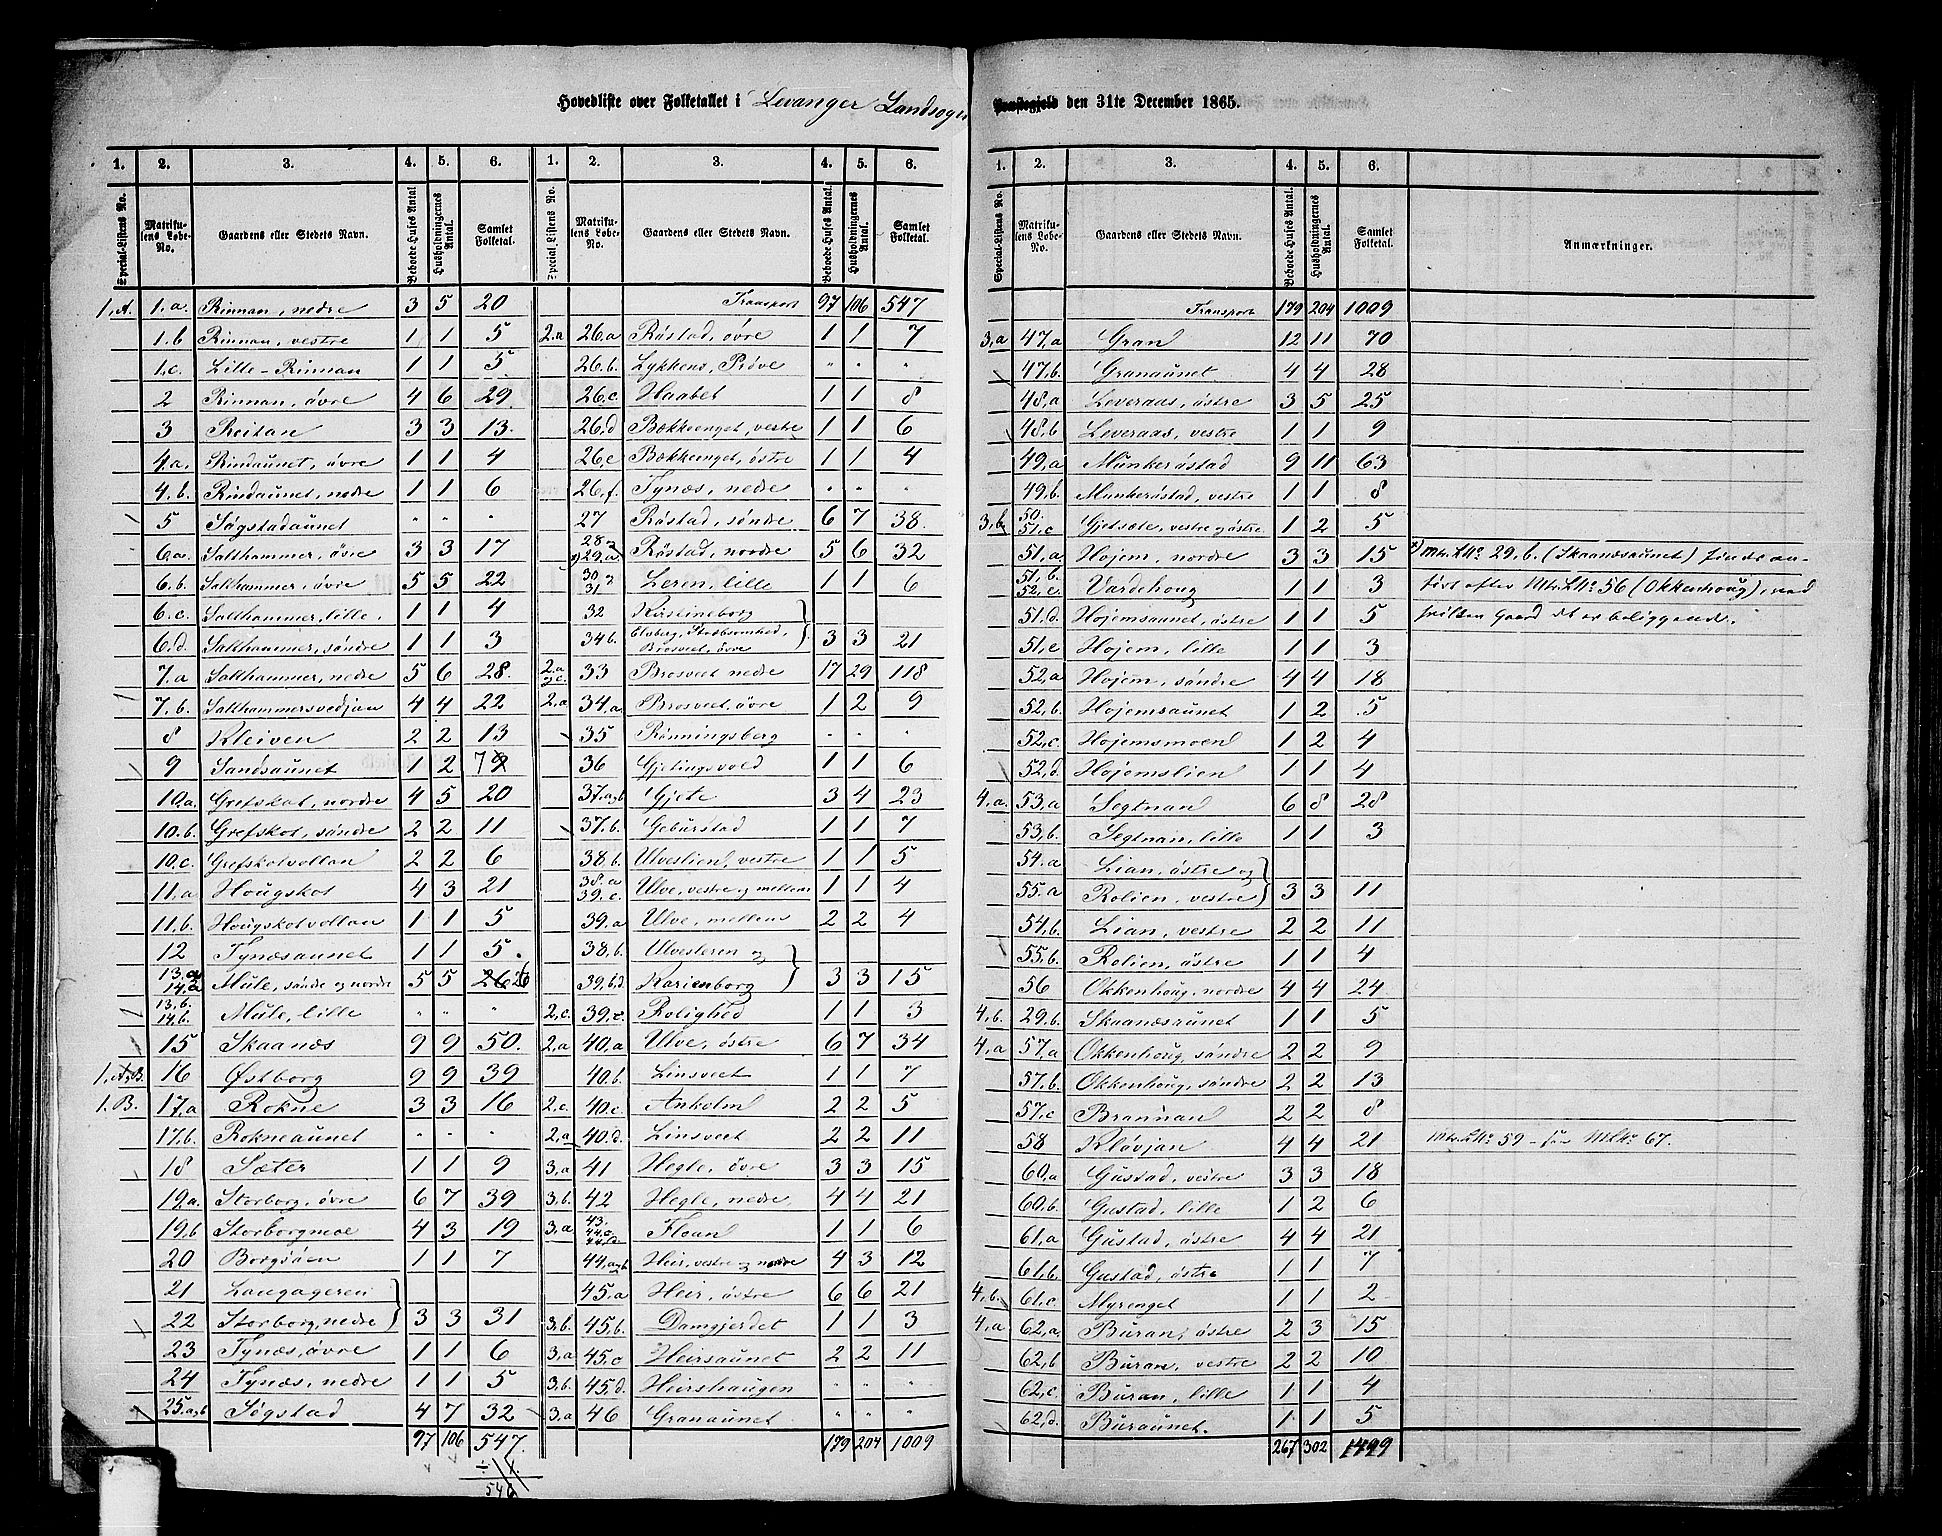 Hovedliste over Folketallet i Levanger Landsogn
Præstegjeld den 31te December 1865.
1. 2. 3. 4. 5. 6. 1. 2. 3. 4. 5. 6.
Special-Listens No. Matrikulens Løbe-No. Gaardens eller Stedets Navn. Beboede Huses Antal. Husholdningernes Antal. Samlet Folketal. Special-Listens No. Matrikulens Løbe-No. Gaardens eller Stedets Navn. Beboede Huses Antal. Husholdningernes Antal. Samlet Folketal.
1,A. 1.a. Rinnan, nedre 3 5 20
1.b Rinnan, vestre 1 1 5
1.c. Lille-Rinnan 1 1 5
2 Rinnan, øvre 4 6 29.
3 Reitan 3 3 13.
4.a. Rindaunet, øvre 1 1 4
4.b. Rindaunet, nedre 1 1 6
5 Søgstadaunet " " "
6.a. Salthammer, øvre 3 3 17
6.b. Salthammer, øvre 5 5 22
6.c. Salthammer, lille. 1 1 4
6.d. Salthammer, søndre 1 1 3
7.a Salthammer, nedre 5 6 28.
7.b. Salthammersvedjan 4 4 22
8 Kleiven 2 2 13
9 Sandsaunet 1 2 7
10.a. Grefskot, nordre 4 5 20
10.b. Grefskot, søndre 2 2 11
10.c. Grefskotvollan 2 2 6
11.a Hougskot 4 3 21
11.b. Hougskotvollan 1 1 5
12 Tynæsaunet 1 1 5.
13.a 14.a Mule, søndre og nordre 5 5 26
13.b. 14.b. Mule, lille " " "
15 Skaanæs 9 9 50.
1.A.B. 16 Østborg 9 9 39
1.B. 17.a Rokne 3 3 16
17.b. Rokneaunet " " "
18 Sæter 1 1 9
19.a. Storborg, øvre 6 7 39
19.b Storborgmoe 4 3 19
20 Borgsøen 1 1 7
21 Langageren
22 Storborg, nedre 3 3 31
23 Tynæs, øvre 1 1 6
24 Tynæs, nedre 1 1 5
25.a,b Søgstad 4 7 32
97 106 547.
546
Transport 97 106 547
2.a 26.a Røstad, øvre 1 1 7
26.b. Lykkens Prøve " " "
26.c Haabet 1 1 8
26.d Bækkenget, vestre 1 1 6
26.e Bækkenget, østre 1 1 4
26.f. Tynæs, nedre " " "
27 Røstad, søndre 6 7 38.
28 29.a Røstad, nordre 5 6 32
30 31 Leren, lille 1 1 6
32 Kirstineborg
34 b. Elsberg, Brosveet, øvre 3 3 21
2.a 2.c. 33 Brosveet nedre 17 29 118
2.a 34.a Brosveet, øvre 1 2 9
35 Rønningsberg " " "
36 Gjetingsvold 1 1 6
37.a,b Gjete 3 4 23
37.b. Geburstad 1 1 7
38.b. Ulveslien, vestre 1 1 5
38.a 39.c. Ulve, vestre og mellem 1 1 4
39.a Ulve, mellem 2 2 4
38.b. Ulvesleren og
39.b.d. Karienborg 3 3 15
2.c. 39.c. Rolighed 1 1 3
2.a 40.a Ulve, østre 6 7 34
40.b. Linsveet 1 1 7
2.c. 40.c. Ankolm 2 2 5
2.a 40.d. Linsveet 2 2 11
3.a 41 Hegle, øvre 3 3 15
3.b. 42 Hegle, nedre 4 4 21
3.a 43. Floan 1 1 6
44.a,b Heir, vestre og nordre 4 3 12
45.a Heir, østre 6 6 21
3.b. 45.b. Damgjerdet 1 1 3
3.a 45.c Heirsaunet 2 2 11
3.b. 45.d. Heirshaugen " " "
3.a 46 Granaunet " " "
179 204 1009
1. 2. 3. 4. 5. 6.
Special-Listens No. Matrikulens Løbe-No. Gaardens eller Stedets Navn. Beboede Huses Antal. Husholdningernes Antal. Samlet Folketal. Anmærkninger.
Transport 179 204 1009
3,a 47,a Gran 12 11 70
47,b. Granaunet 4 4 28
48,a Leveraas, østre 3 5 25
48,b Leveraas, vestre 1 1 9
49,a Munkerøstad 9 11 63
49,b. Munkerøstad, vestre 1 1 8
3,b 50. 51,c Gjetsæte, vestre og østre 1 2 5
51,a Hojem, nordre 3 3 15 Mtr. LNo 29,b. (Skaanæsaunet) findes an-
51,b. 52,e. Vardehoug 1 1 3 ført efter Mtr. LNo 56 (Okkenhoug), ved
51,d. Hojemsaunet, østre 1 1 5 hvilken Gaard det er beliggende.
51,e Hojem, lille 1 1 3
52,a Hojem, søndre 4 4 18
52,b. Hojemsaunet 1 2 5
52,c. Hojemsmoen 1 2 4
52,d. Hojemslien 1 1 4
4,a. 53,a Segtnan 6 8 28
53,b. Segtnan, lille 1 1 3
54.a Lian, østre og
55.a Rolien, vestre 3 3 11
54,b. Lian, vestre 2 2 11
55,b. Rolien, østre 1 1 4
56 Okkenhoug, nordre 4 4 24
4,b. 29,b. Skaanæsaunet 1 1 5
4,a 57,a Okkenhoug, søndre 2 2 9
57,b. Okkenhoug, søndre 2 2 13
57,c Brannan 2 2 8
58 Kløvjan 4 4 21 Mtr. LNo 59 - før MLNo 67.
60,a Gustad, vestre 3 3 18
60,b. Gustad, lille 1 2 6
61,a Gustad, østre 4 4 21
61,b. Gustad, østre 1 1 7
4,b. 61,c. Myrenget 1 1 2
4,a 62,a. Buran, østre 2 3 15
62,b Buran, vestre 2 2 10
62,c. Buran, lille 1 1 4
62,d. Buraunet. 1 1 5
267 302 1499